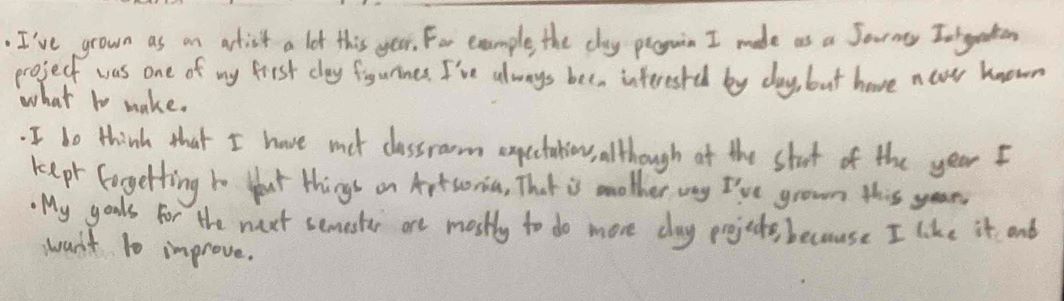 • I've grown as an artist a lot this year. For example, the clay penguin I made as a Journey Integration
project was one of my first clay figurines. I've always been interested by clay, but have never known
what to make.
• I do think that I have met classroom expectations, although at the start of the year I
kept forgetting to put things on Artsonia. That is another way I've grown this year.
• My goals for the next semester are mostly to do more clay projects, because I like it and
want to improve.